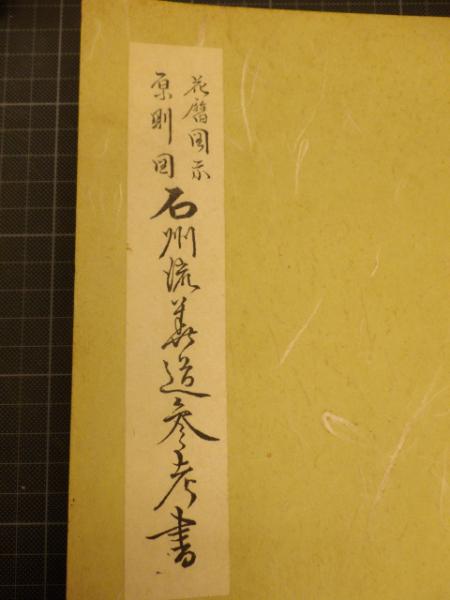 花暦図示
原則図
石州流華道参考書